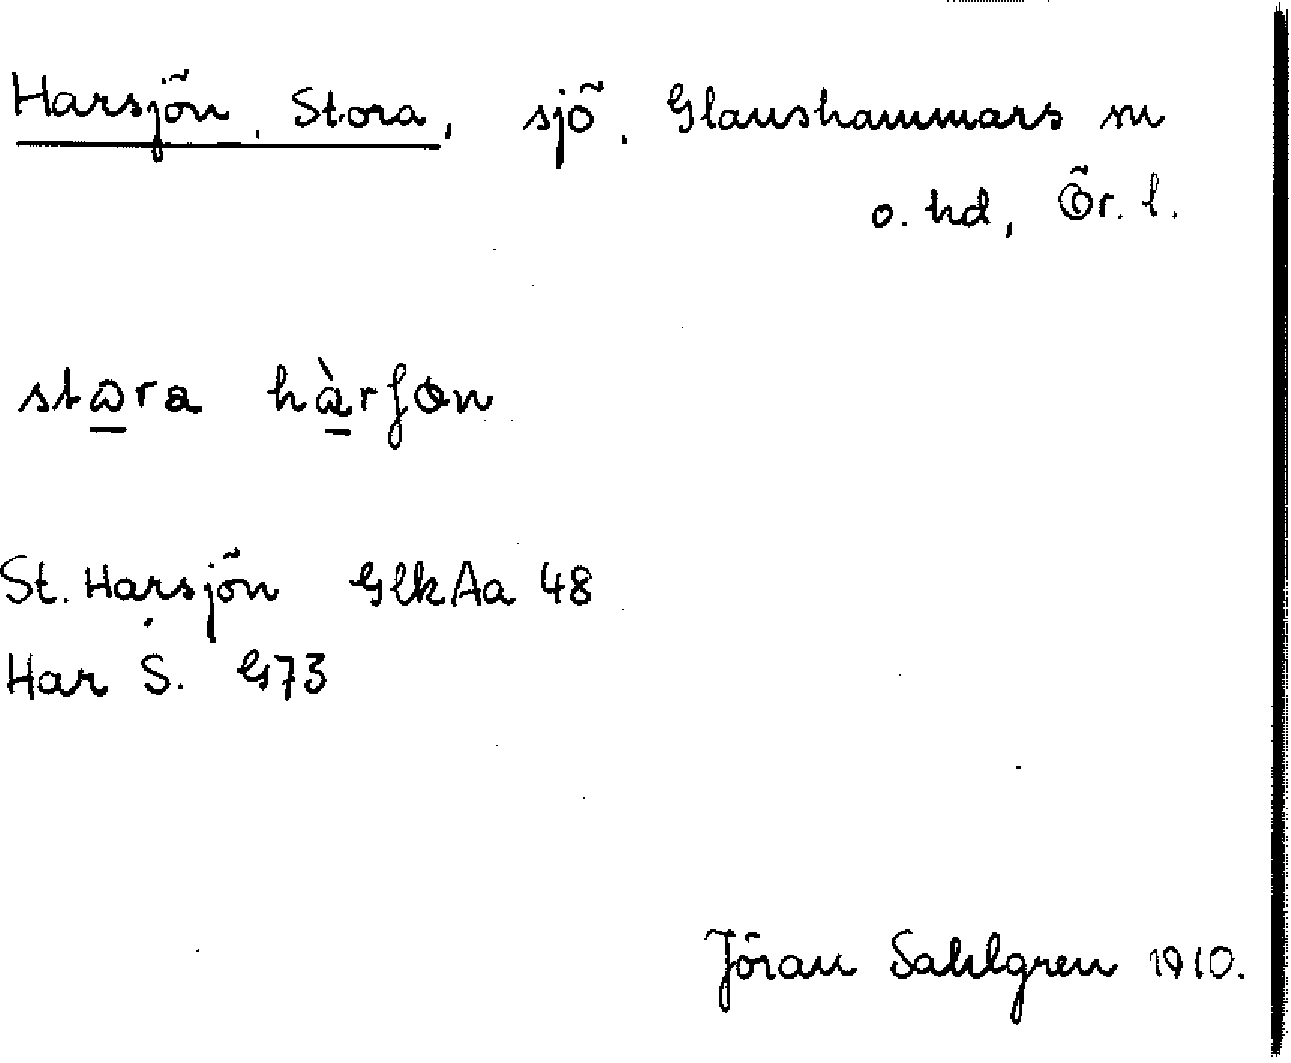 Harsjön, Stora, sjö. Glanshammars sn
o. hd, Ör. l.
stɷra hàrʃɵn
St. Harsjön GlkAa 48
Har S. G73
Jöran Sahlgren 1910.